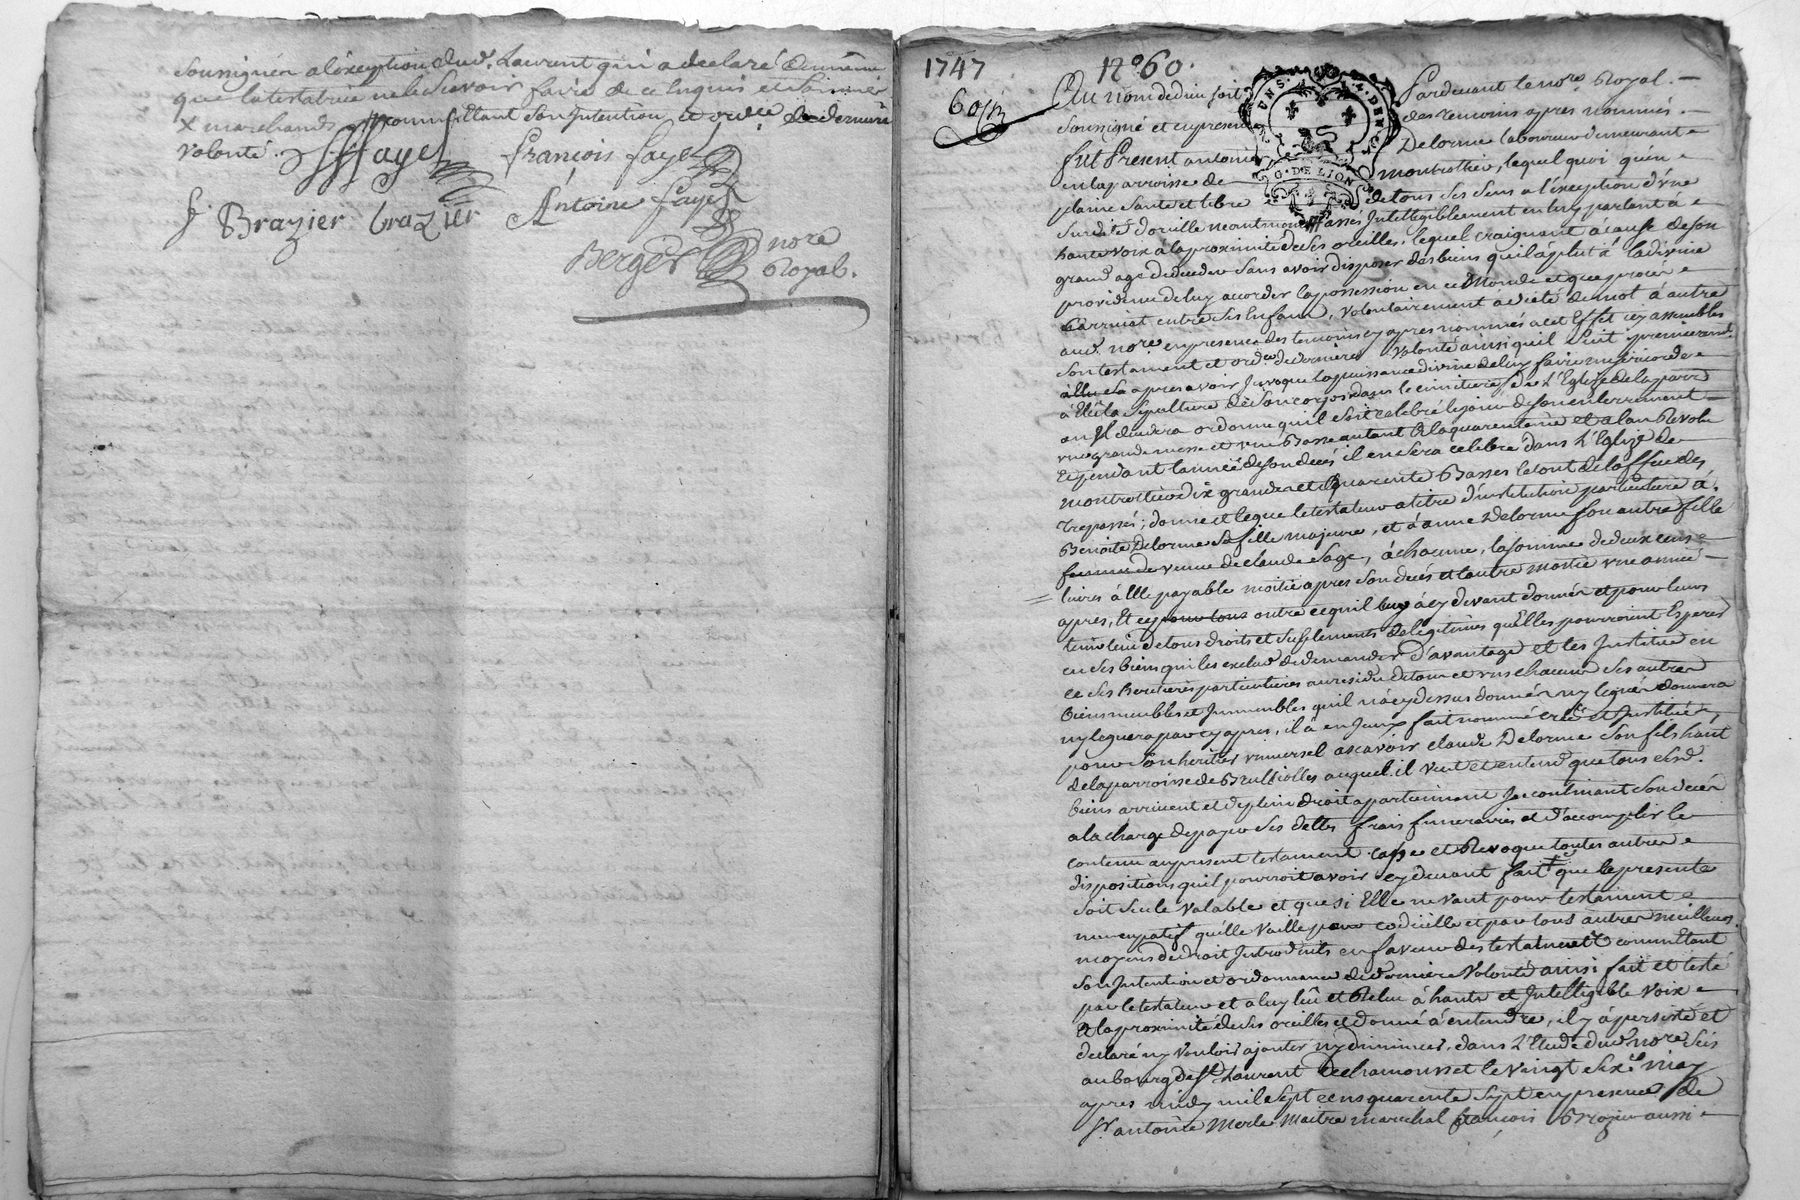 soussignés a l'exeption dud. Laurent qui a declaré de même
que la testatrice ne le sçavoir faire de ce enquis et sommés
x marchands commettant son Intention et ordce de derniere
volonté.
Fayel françois fayel
Brazier brazier Antoine fayel
Berger nore
Royal.
1747 N° 60.
60
Au nom de dieu soit Pardevant le nore Royal
soussigné et en presence des temoins apres nommés
fut Present antoine Delorme laboureur demeurant
en la parroisse de montrottier, lequel quoi qu'en
plaine santé et libre de tous ses sens a l'exeption d'une
surdité d'oreille neantmoins assés Intelligiblement en luy parlant a
haute voix à la proximité de ses oreilles, lequel craignant à cause de son
grand age de deceder sans avoir disposer des biens qu'il à plut à la divine
providence de luy accorder la possession en ce monde et que procès
n'arrivat entre ses Enfans, volontairement a dicté de mot à autre
aud. nore en presence des temoins cy apres nommés a cet Effet icy assemblés
son testament et ordce de derniere volonté ainsi qu'il suit premierement
apres avoir Invoqué la puissance divine de luy faire misericorde
a Elû la sepulture de son corps dans le cimitiere de L'Eglise de la parre
ou Il decedera ordonne qu'il soit celebré le jour de son enterrement
une grande messe et une Basse autant à la quarentaine et a l'an Revolu
Et pendant l'année de son decés il en sera celebré dans L'Eglise de
montrottier dix grandes et quarente Basses le tout de l'office des
trepassés; donne et legue le testateur a titre d'institution particuliere à
Benoite Delorme sa fille majeure, et à anne Delorme son autre fille
femme de veuve de claude Sage, à chacune, la somme de deux cens
livres à Elle payable moitié apres son decés et l'autre moitié une année
apres, Et ce pour tous outre ce qu'il luy à cy devant donné et pour leurs
tenir lieu de tous droits et suplements de legitimes qu'elles pourroient Esperer
en ses biens qui les exclud de demander d'avantage et les Institue en
ce ses heritieres particulieres au residu de tous et uns chacuns ses autres
biens meubles et Immeubles qu'il n'a cy dessus donnés ny legués donnera
ny leguera par cy apres, il à en Iceux fait nommé créé et Institué
pour son heritier universel ascavoir claude Delorme son fils habt
de la parroisse de Brullioles auquel il veut et entend que tous sesd.
biens arrivent et de plein droit apartiennent Incontinant son decés
a la charge de payer ses dettes frais funeraires et d'accomplir le
contenu au present testament casse et Revoque toutes autres
dispositions qu'il pourroit avoir cy devant fait que la presente
soit seule valable et que si Elle ne vaut pour testament
nuncupatif qu'elle vaille pour codicille et par tous autres meilleurs
moyens de droit Introduits en faveur des testateurs commettant
son Intention et ordonnance de derniere volonté ainsi fait et testé
par le testateur et a luy lû et Relu à haute et Intelligible voix
Et la proximité de ses oreilles et donné à entendre, il y à persisté et
declaré ny vouloir ajouter ny diminuer, dans L'Etude dud. nore sise
au bourg de St Laurent de chamousset le vingt six may
apres midy mil sept cens quarente sept en presence de
Sr antoine Merle Maitre marechal françois Brazier aussi